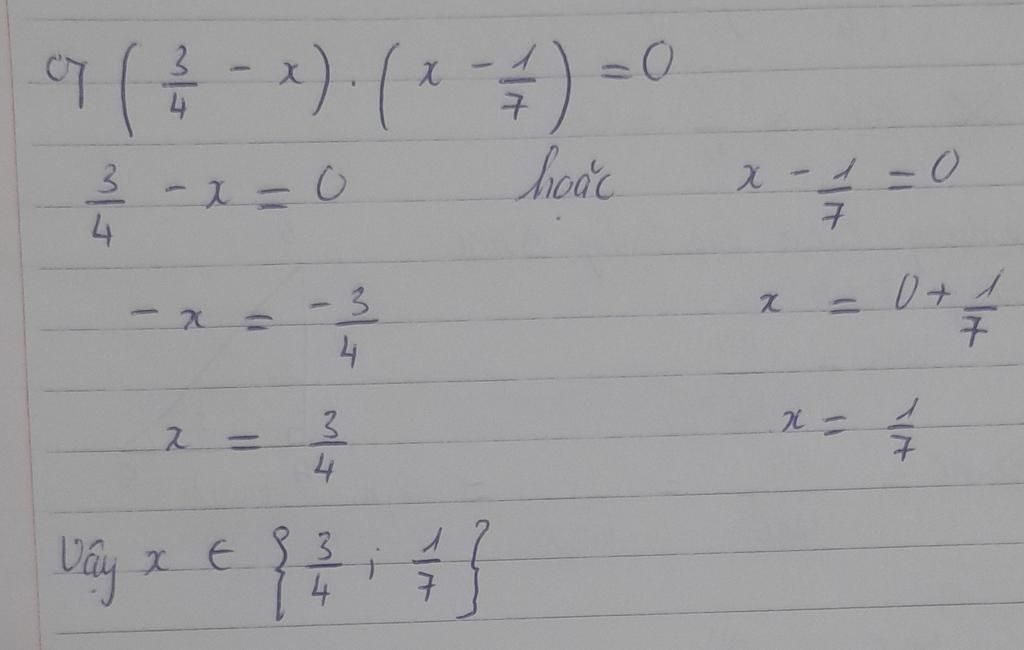 a) (3/4 - x) . (x - 1/7) = 0
3/4 - x = 0 hoặc x - 1/7 = 0
- x = -3/4 x = 0 + 1/7
x = 3/4 x = 1/7
Vậy x ∈ {3/4 ; 1/7}